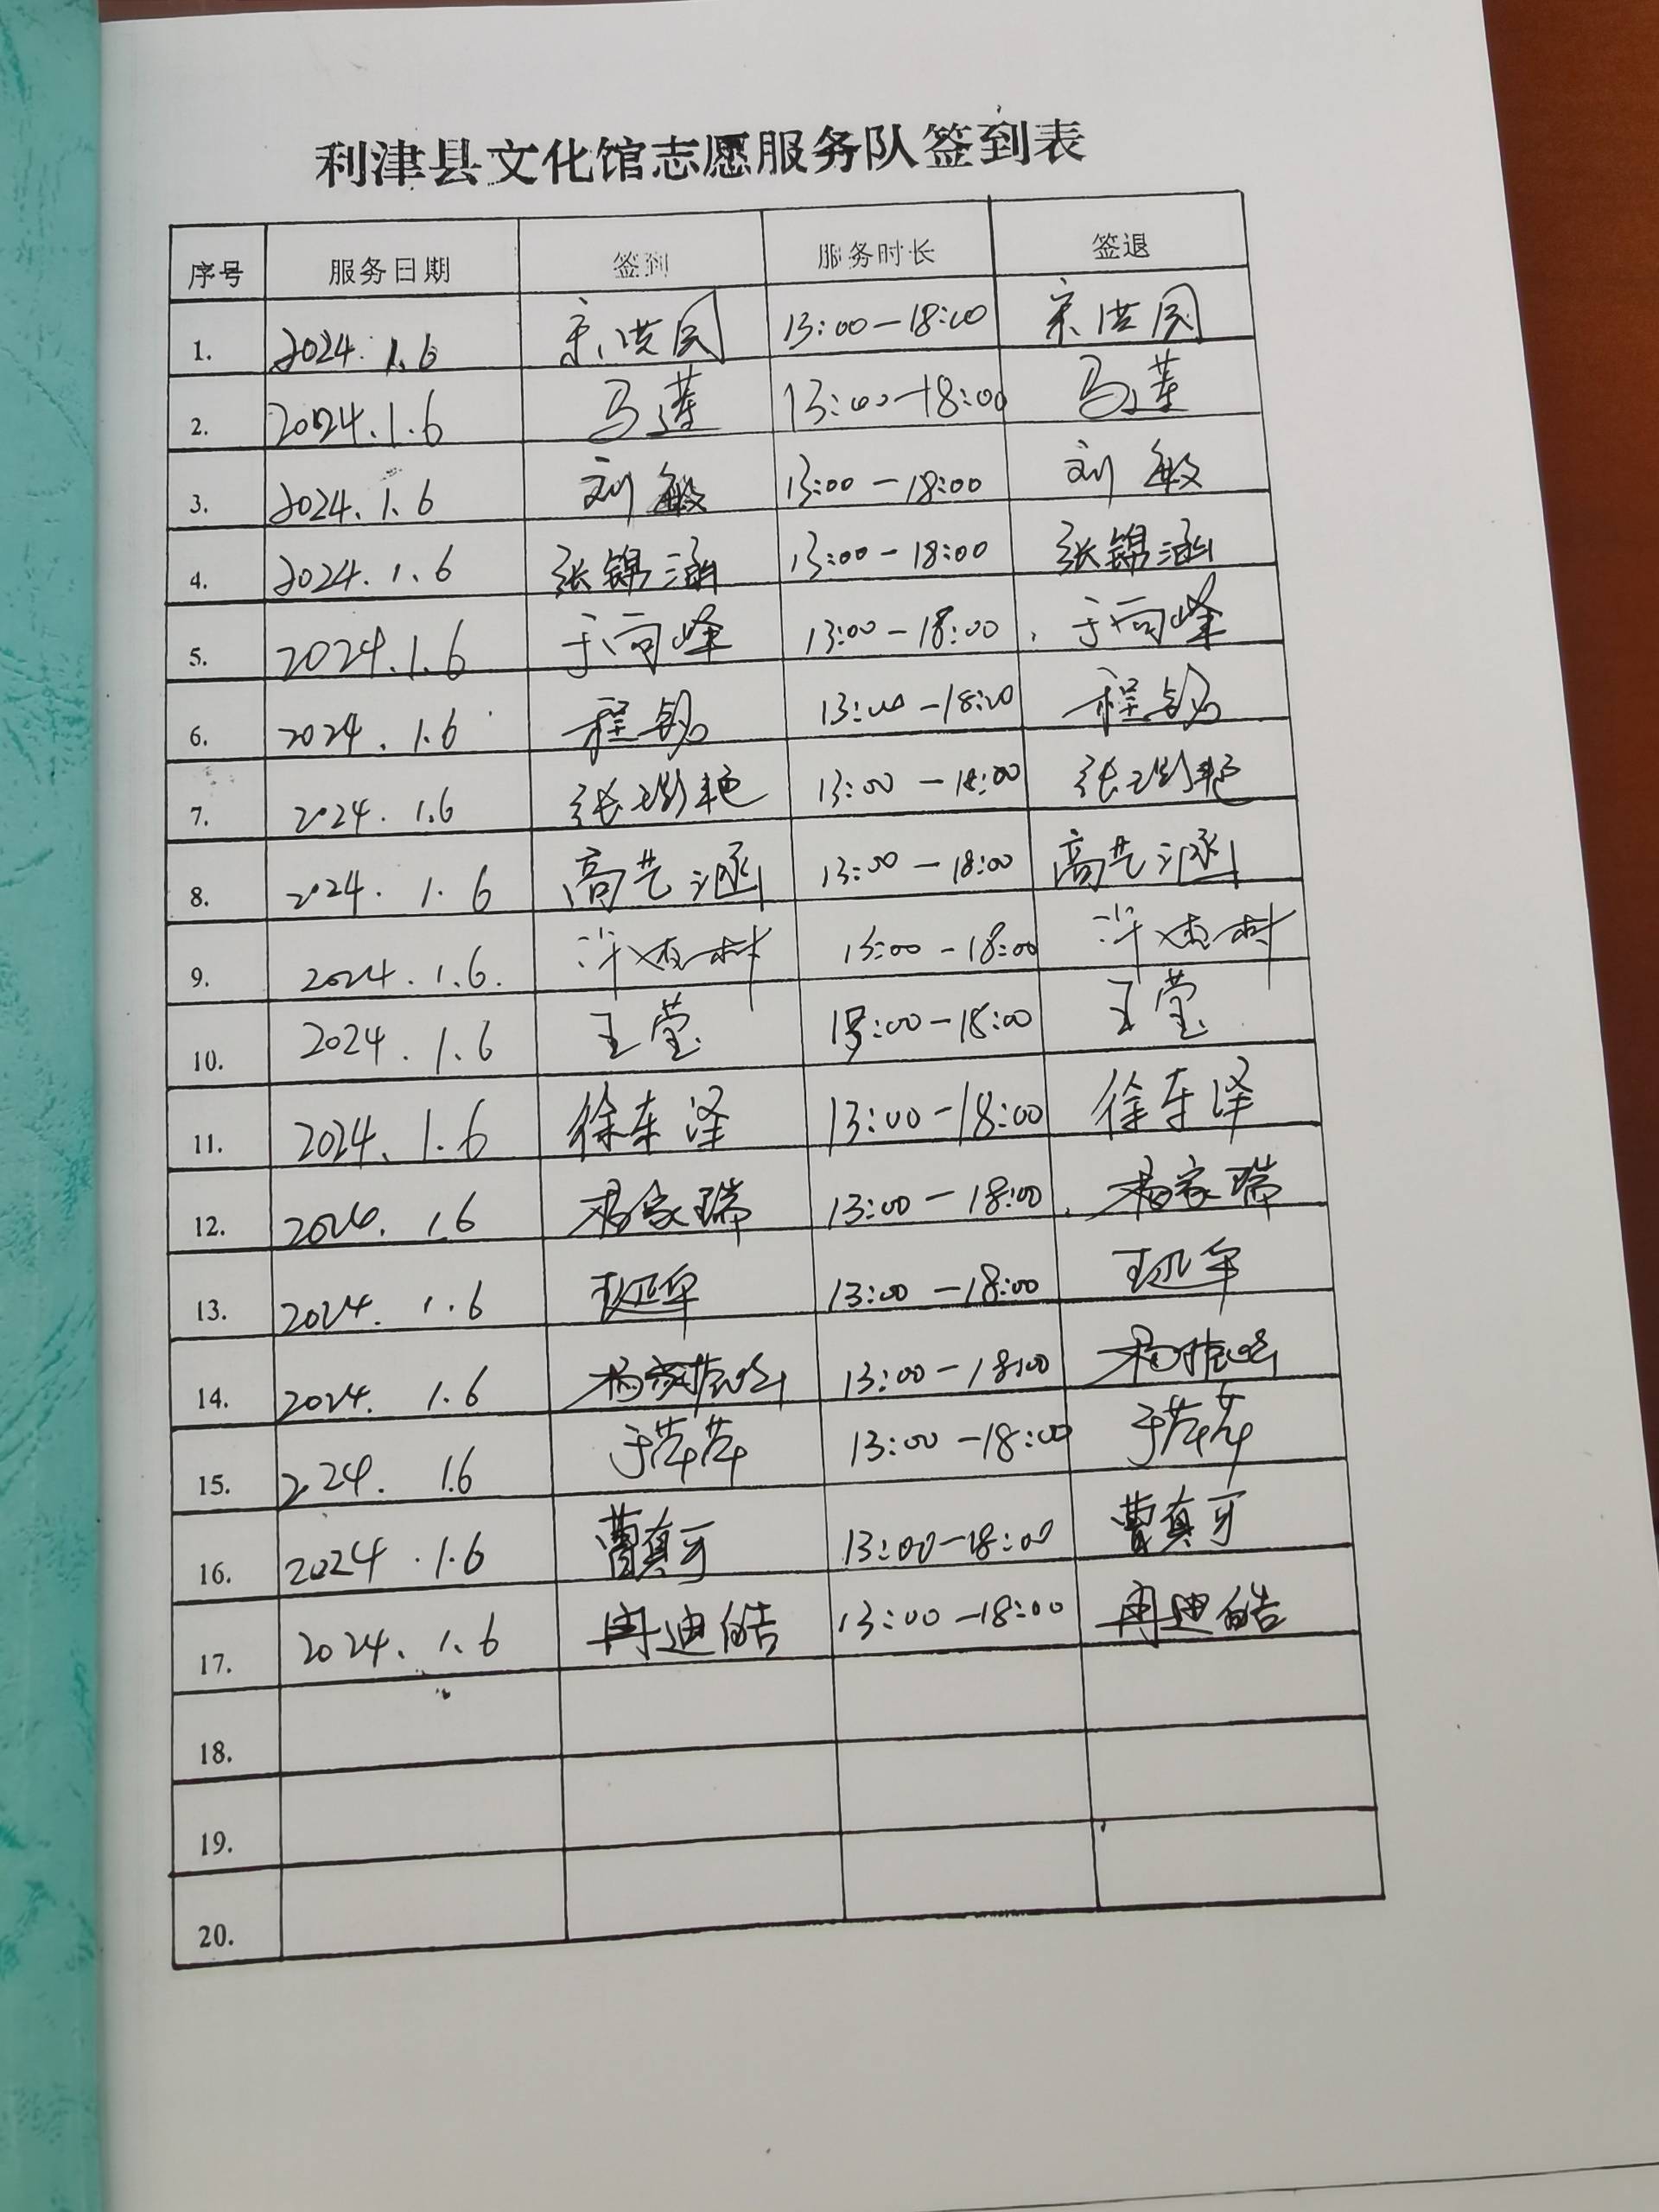 利津县文化馆志愿服务队签到表
序号 服务日期 签到 服务时长 签退
1. 2024.1.6 宋洪国 13:00-18:00 宋洪国
2. 2024.1.6 马莲 13:00-18:00 马莲
3. 2024.1.6 刘敏 13:00-18:00 刘敏
4. 2024.1.6 张锦涵 13:00-18:00 张锦涵
5. 2024.1.6 于向峰 13:00-18:00 于向峰
6. 2024.1.6 程 13:00-18:00 程
7. 2024.1.6 张 艳 13:00-18:00 张 艳
8. 2024.1.6 高艺涵 13:00-18:00 高艺涵
9. 2024.1.6. 13:00-18:00
10. 2024.1.6 王莹 13:00-18:00 王莹
11. 2024.1.6 徐东泽 13:00-18:00 徐东泽
12. 2024.1.6 杨家瑞 13:00-18:00 杨家瑞
13. 2024.1.6 13:00-18:00
14. 2024.1.6 杨 13:00-18:00 杨
15. 2024.1.6 于苹苹 13:00-18:00 于苹苹
16. 2024.1.6 曹真可 13:00-18:00 曹真可
17. 2024.1.6 冉迪皓 13:00-18:00 冉迪皓
18.
19.
20.